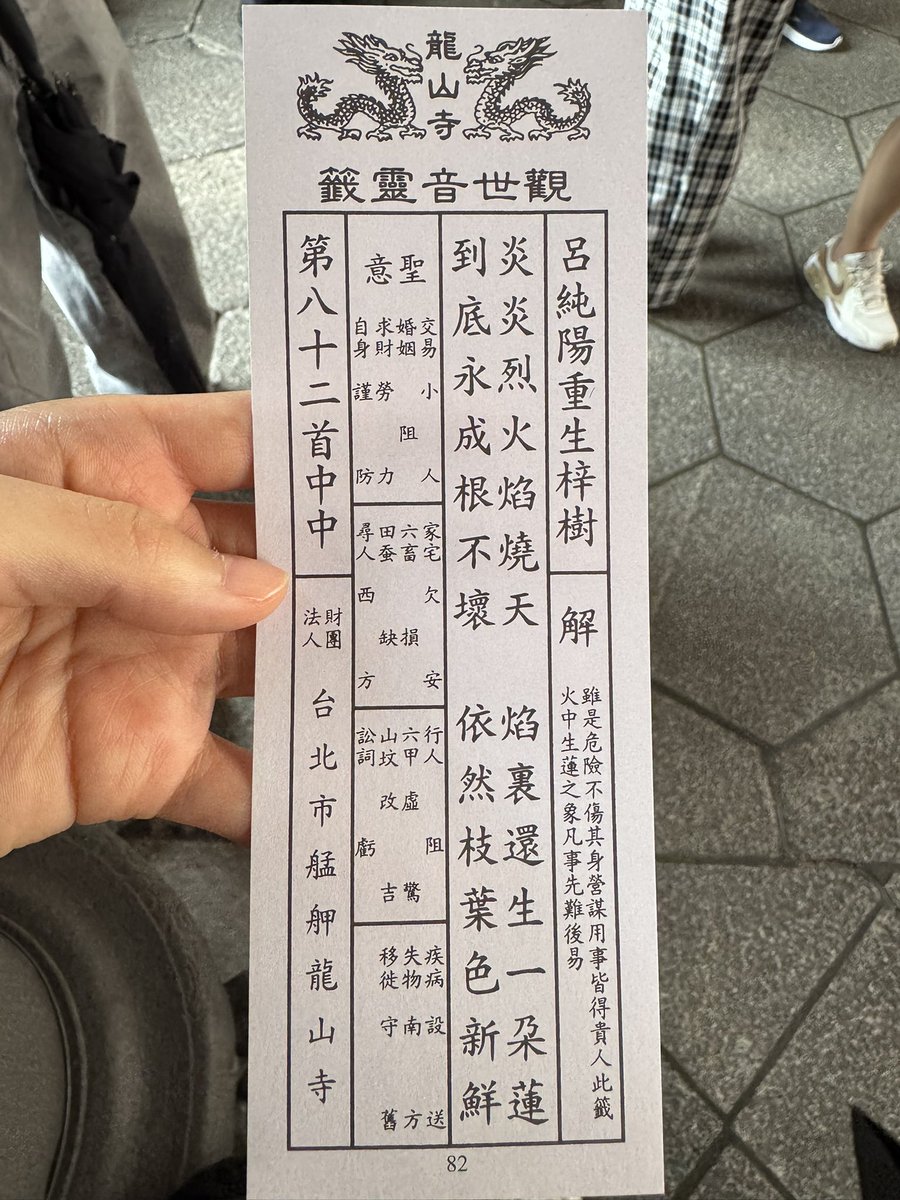 龍山寺
觀世音靈籤
呂純陽重生梓樹
解
雖是危險不傷其身營謀用事皆得貴人此籤
火中生蓮之象凡事先難後易
炎炎烈火焰燒天 焰裏還生一朵蓮
到底永成根不壞 依然枝葉色新鮮
聖意
交易 小人
婚姻 阻
求財 勞力
自身 謹防
家宅 欠安
六畜 損
田蚕 缺
尋人 西方
行人 阻
六甲 虛驚
山坟 改吉
訟詞 虧
疾病 設送
失物 南方
移徙 守舊
第八十二首中中
財團法人 台北市艋舺龍山寺
82